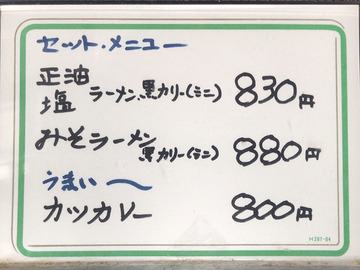 セット・メニュー
正油
塩 ラーメン、黒カリー(ミニ) 830円
みそラーメン
黒カリー(ミニ) 880円
うまい〜
カツカレー 800円